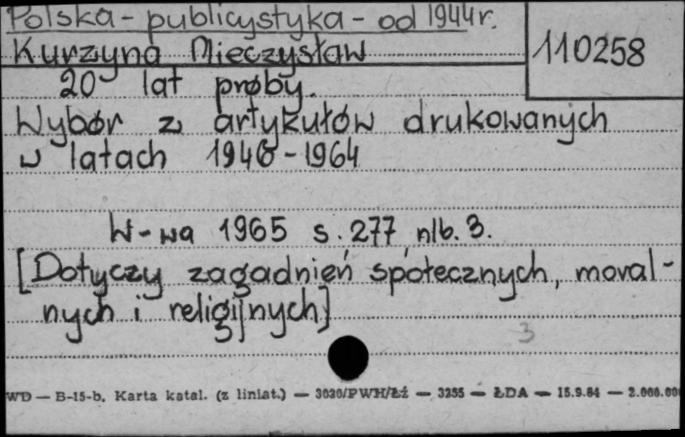 Polska - publicystyka - od 1944r.
110258
Kurzyna Mieczysław
20 lat próby.
Wybór z artykułów drukowanych
w latach 1946-1964
W-wa 1965 s. 277 nlb. 3.
[Dotyczy zagadnień społecznych, moral-
nych i religijnych]
3
WD — B-15-b. Karta katal. (z liniat.) — 3030/PWH/Łź — 3255 — ŁDA — 15.9.84 — 2.000.00